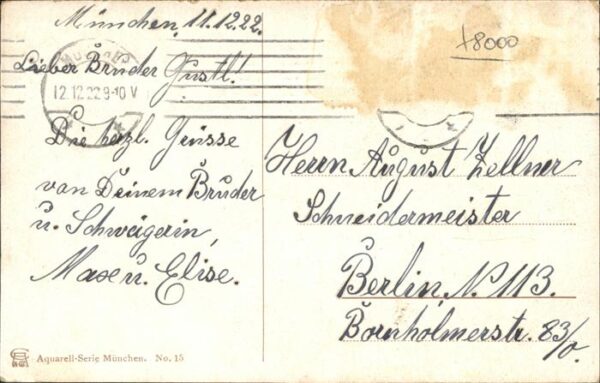 München, 11.12.22.
Lieber Bruder Gustl!
MÜNCHEN
12.12.22.9-10 V
Die herzl. Grüsse
von Deinem Bruder
u. Schwägerin,
Max u. Elise.
+8000
Herrn August Zellner
Schneidermeister
Berlin, N 113.
Bornholmerstr. 83/0.
Aquarell-Serie München. No. 15